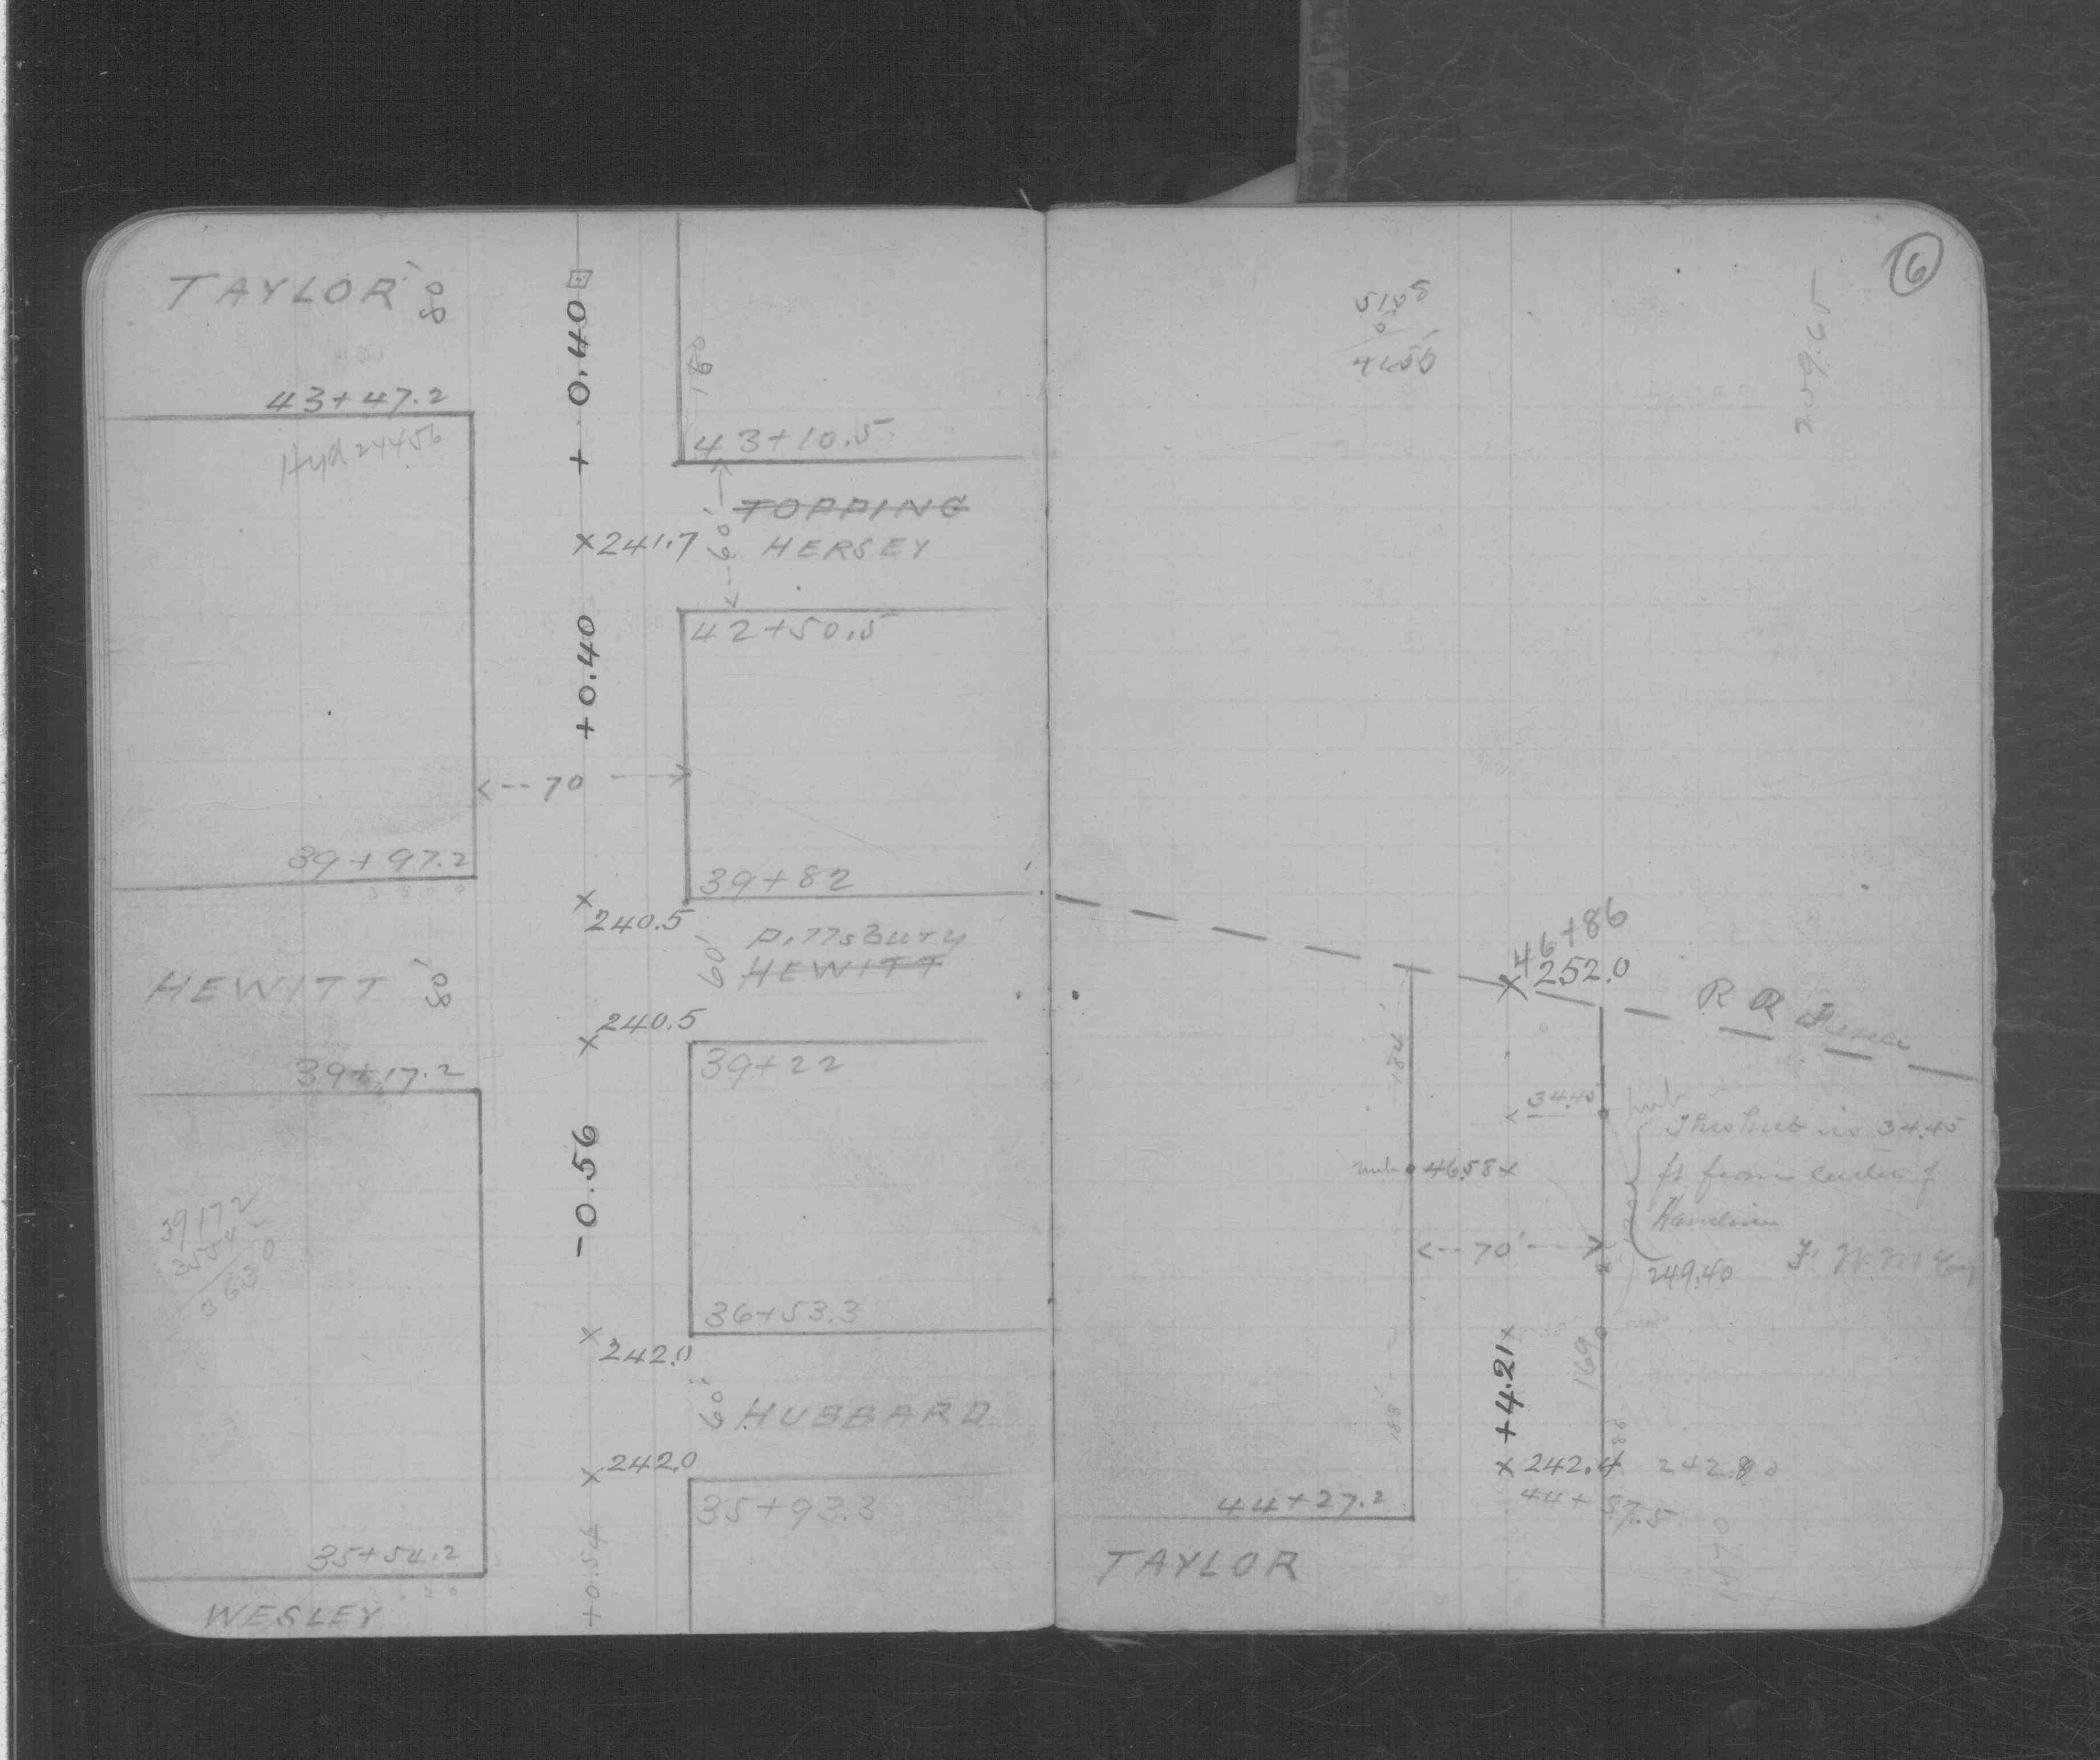 TAYLOR 80'
43+47.2
Hyd 244.56
39+97.2
3500
HEWITT 80'
39+17.2
39172
3554
3630
35+54.2
3630
WESLEY
+ 0.40
×241.7
+0.40
<--70-->
×240.5
×240.5
-0.56
×242.0
×242.0
+0.54
160
43+10.5
<--60'-->
TOPPING
HERSEY
42+50.5
39+82
60' Pillsbury
HEWITT
39+22
36+53.3
60' HUBBARD
35+93.3
6
209.65
46+86
×252.0
R R Fence
184'
34.45
hub
This hub is 34.45
ft from center of
Hamline
hub 46.58×
<--70'-->
249.40
+4.21×
169
183'
86
×242.4 242.80
44+27.2
44+57.5
1470
TAYLOR